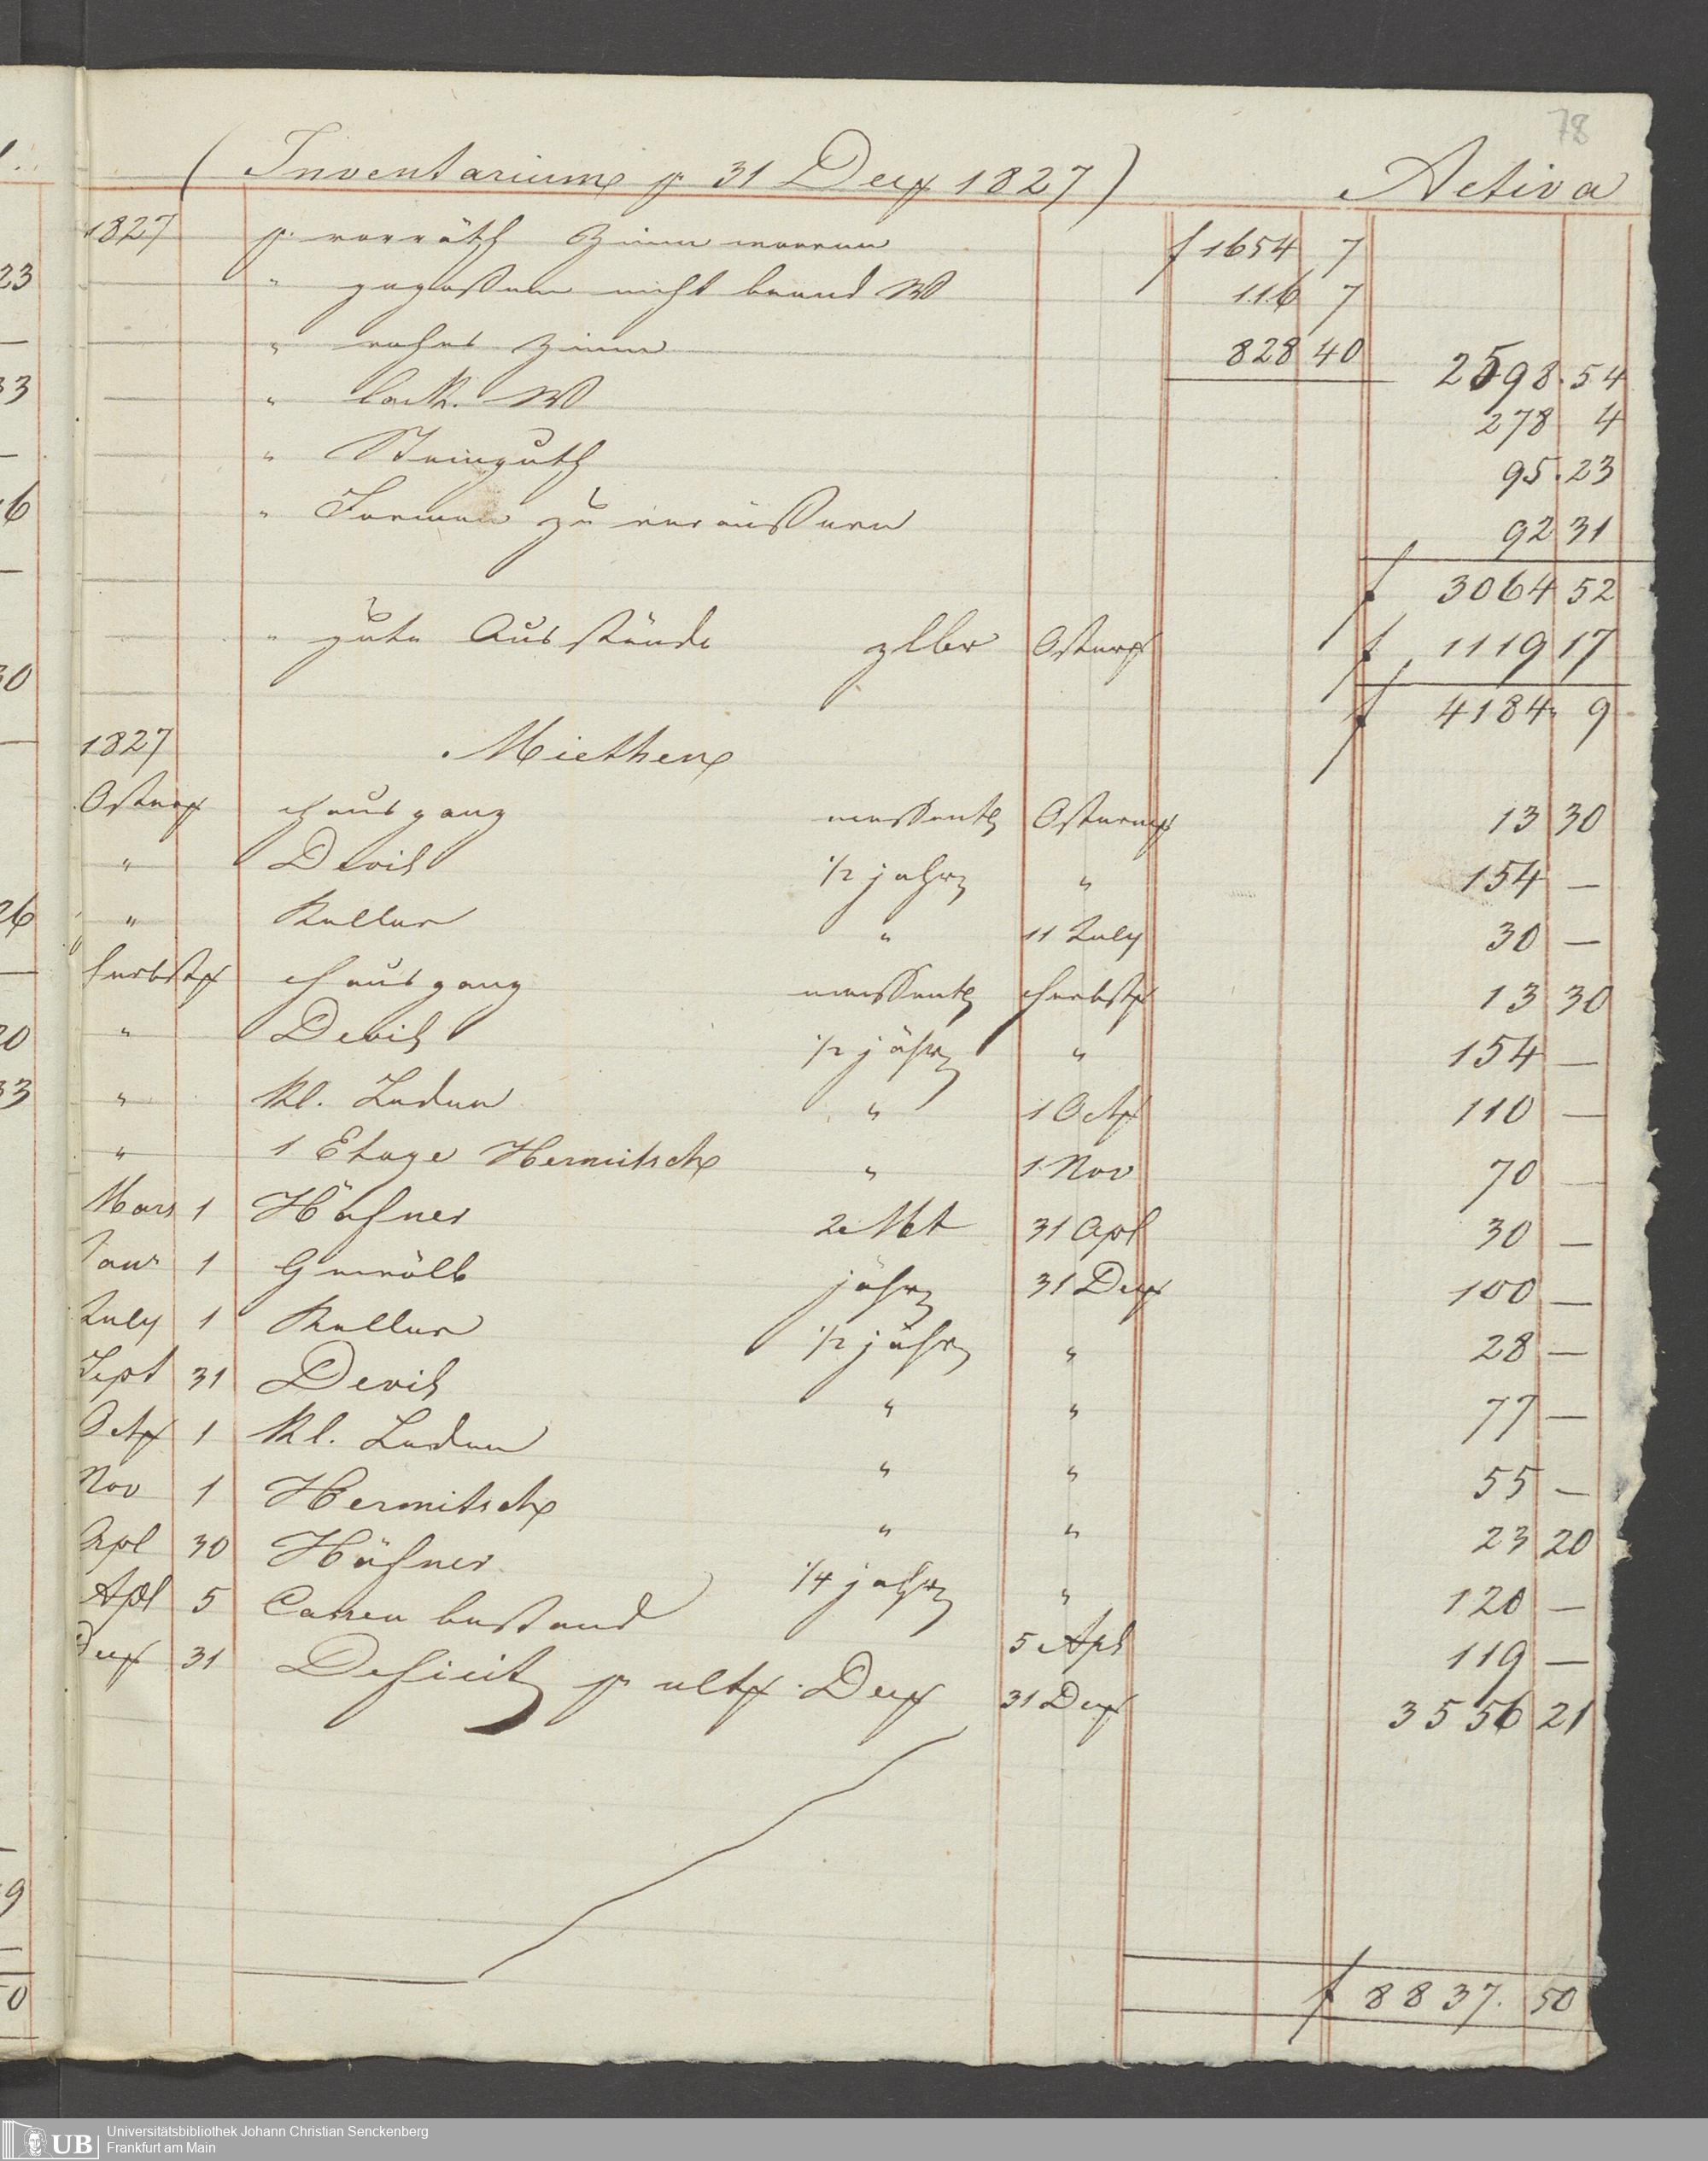 78
( Inventarium p 31 Decr 1827 ) Activa
1827 p. vorräth Zinnwaaren f 1654 7
" gegossene nicht W 116 7
" rohes Zinn 828 40 2598.54
" lack. W 278 4
" Steinguth 95.23
" Formen zu veräussern 92 31
f 3064 52
" gute Ausstände Osterm f 1119 17
f 4184. 9
1827 Miethen
Osterm Hausgang messentl Osterm 13 30
" Devil 1/2 jahr " 154 —
" Keller " 11 July 30 —
Herbstm Hausgang messentl Herbstm 13 30
" Devil 1/2 jähr " 154 —
" kl. Laden " 1 Oct 110 —
" 1 Etage Hermitsch " 1 Nov 70 —
Mars 1 Häfner 2 Mt 31 Apl 30 —
Janr 1 Gewölb jähr 31 Decr 100 —
July 1 Keller 1/2 jähr " 28 —
Sept 31 Devil " " 77 —
Oct 1 kl. Laden " " 55 —
Nov 1 Hermitsch " " 23 20
Apl 30 Häfner 1/4 jahr " 120 —
Apl 5 Cassen bestand 5 Apl 119 —
Decr 31 Deficit p ult. Decr 31 Decr 3556 21
f 8837. 50
23
—
33
—
16
—
30
—
26
—
20
33
9
—
50
UB Universitätsbibliothek Johann Christian Senckenberg
Frankfurt am Main